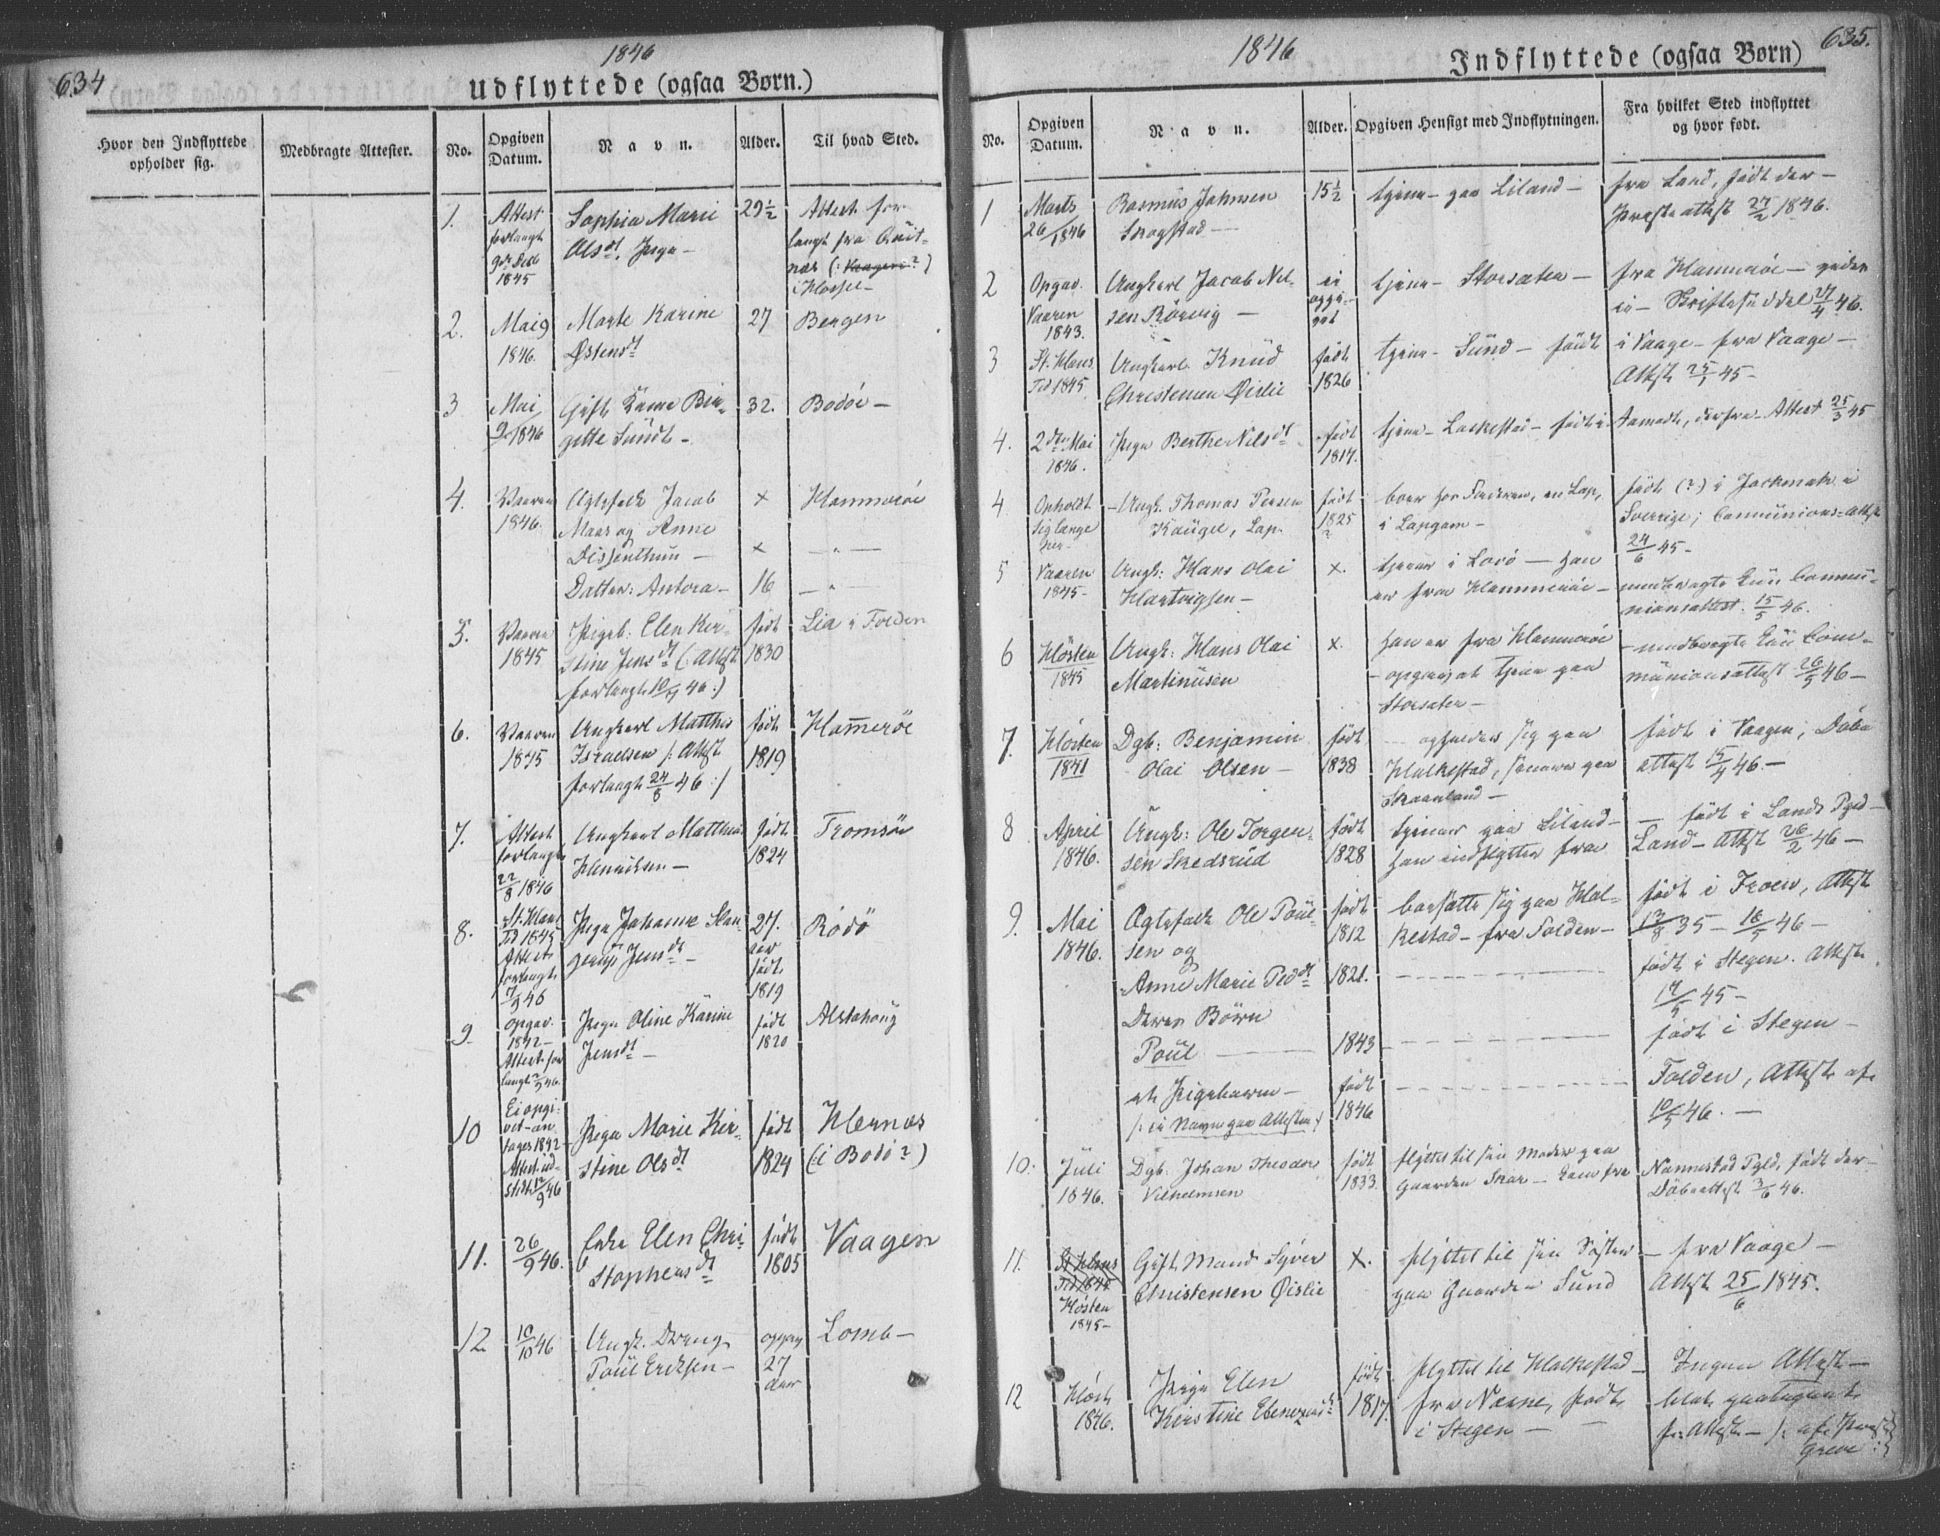 634
1846
Udflyttede (ogsaa Børn.)
Hvor den Indflyttede
opholder sig.
Medbragte Attester.
No.
Opgiven
Datum.
Navn.
Alder.
Til hvad Sted.
1.
Attest
forlangt
9de Dec
1845
Sophia Marie
Olsdt. Pige
29½
Attest for-
langt fra
næs (:
2.
Mai 9
1846.
Marte Karine
Østensdt
27
Bergen
3
Mai
9 1846
Gift Kone Bir-
gitte Sundt -
32.
Bodöe -
4.
Vaaren
1846.
Ægtefolk Jacob
og Anne
Dissenthun -
Datter: Antora -
×
×
16
Hammeröe
- " -
- " -
5.
Vaaren
1845
Pigeb: Elen Kir-
stine Jensdt (: Attest
forlangt 10/9 46 :)
født
1830
Lia i Folden
6.
Vaaren
1845
Ungkarl Matthis
Israelsen /: Attest
forlangt 24/8 46 :/
født
1819
Hammeröe
7.
Attest
forlangt
22/8 1846
Ungkarl Matthias
Henriksen -
født
1824
Tromsöe
8.
St. Hans
Tid 1845
Attest
forlangt
7/9 46
Pige Johanne
Jensdt -
27.
født
1819
Rödö
9
Opgav.
1842 -
Attest for
langt 7/9 46.
Pige Oline Karine
Jensdt -
født
1820
Alstahoug
10
Ei opgi-
vet - an
tages 1842
Attest ud-
stedt 12/9 46
Pige Marie Kir-
stine Olsdt
født
1824
Hernæs
(: i Bodö?)
11.
26/9 46.
Enke Elen Chri-
stophersdt
født
1805
Vaagen
12
10/10 46
Ungk. Dreng
Poul Ericksen -
opgav
27
Aar
Lomb -
1846
Indflyttede (ogsaa Børn)
635.
No.
Opgiven
Datum.
Navn.
Alder.
Opgiven Hensigt med Indflytningen.
Fra hvilket Sted indflyttet
og hvor født.
1
Marts
26/1846
Rasmus Johnsen
Skogstad -
15½
tjene - paa Liland -
fra Land, født der -
Præsteattest 27/2 1846.
2
Opgav.
Vaaren
1843.
Ungkarl Jacob Nil-
sen Rörvig -
ei
opgi-
vet
tjene - Storsæter -
fra Hammeröe -
ei - Skrifteseddel 27/4 46.
3
St. Hans
Tid 1845.
Ungkarl Knud
Christensen Öislie
født
1826
tjene - Sund - født
i Vaage - fra Vaage -
Attest 25/1 45 -
4.
2den Mai
1846.
Pige Berthe Nilsdt
født
1817.
tjene - Laskestad - født i
derfra Attest 25/3 45
4
Opholdt
sig længe
her -
- Ungk. Thomas Persen
Kougel, Lap.
født
1825
?
boer hos Forældren, en Lap,
i Lapgam -
født (?) i Jockmok i
Sverige; Communions-Attst
24/6 45 -
5
Vaaren
1845 -
Ungk: Hans Olai
Hartvigsen -
×.
tjener i Lovö - han
er fra Hammeröe -
medbragte kun Commu-
nionsattest. 15/5 46.
6
Høsten
1845
Ungk: Hans Olai
Martinusen
×.
han er fra Hammeröe
- opgav at tjene paa
Storsæter -
- medbragte kun Com-
munionsattest 26/5 46 -
7.
Høsten
1841
Dgb: Benjamin
Olai Olsen -
født
1838
- opholder sig paa
Halkestad, senere paa
Skaanland -
født i Vaagen, Döbe
attest 15/4 46 -
8
April
1846.
Ungk: Ole Torgen-
sen Skedsrud
født
1828
tjener paa Liland -
han indflytter fra
- født i Lands Pgd -
Land - Attst 26/2 46 -
9.
Mai
1846.
Ægtefolk Ole Poul-
sen og
Anne Marie Pedsdt
Deres Børn
Poul -
et Pigebarn -
/: ei Navn paa Attesten :/
født
1812
1821.
1843
født
1846
bosatte sig paa Hal-
kestad - fra Folden -
født i Froen, Attest
13/8 35 - 16/5 46 -
født i Stegen. Attest
17/5 45 -
født i Stegen -
Folden, Attest af
10/5 46. -
10.
Juli
1846.
Dgb. Johan Theodor
Vilhelmsen
født
1833.
flyttet til sin Moder paa
Gaarden Skar - kom fra
Nannestad Pgld. født der -
Döbeattest 3/6 46.
11.
St Hans
Tid 1845
Høsten
1845 -
Gift Mand Syver
Christensen Öislie
×.
flyttet til sin Søster -
paa Gaarden Sund
- fra Vaage -
Attest 25/6 1845.
12
Høst
1846.
Pige Elen
Kirstine Ebenezersdt
født
1817.
flyttet til Halkestad -
fra Næsne, født
i Stegen -
Ingen Attest -
blot paategnet
fr: Attest - /: af Præst
Greve :/